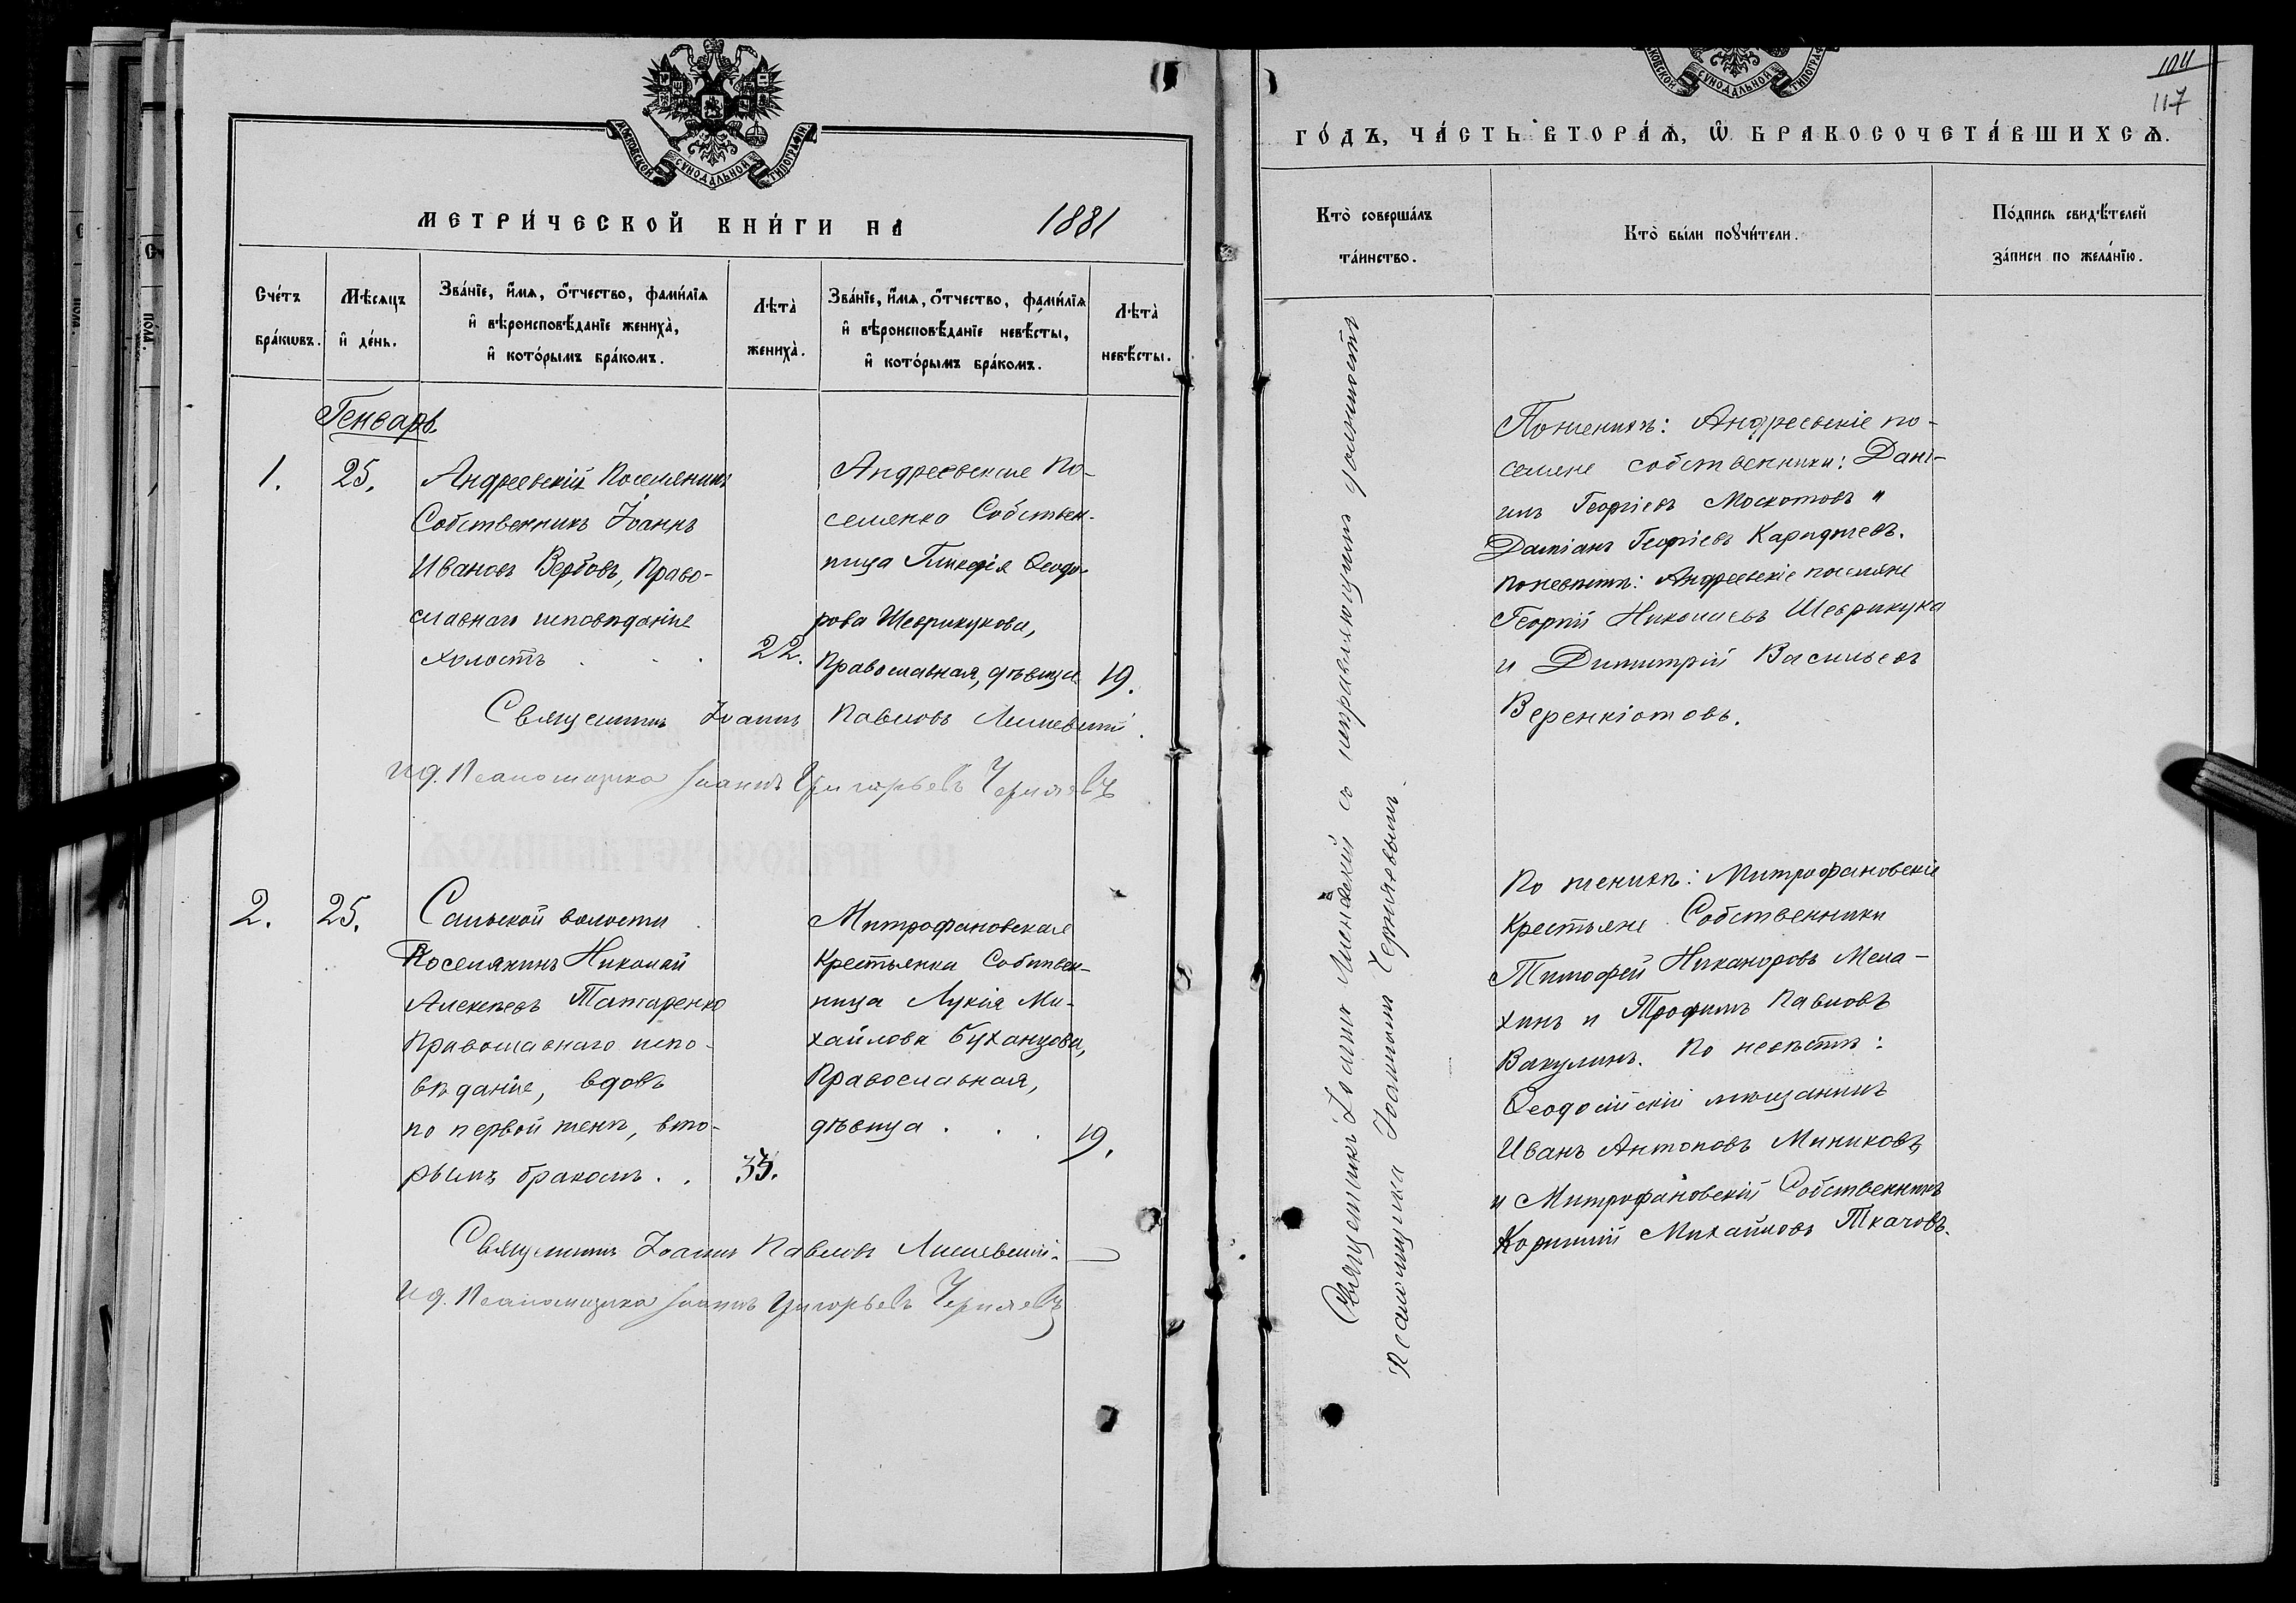 МОСКОВСКОЙ СѴНОДАЛЬНОЙ ТИПОГРАФІИ
МЕТРИ́ЧЕСКОЙ КНИ́ГИ НА 1881
Сче́тъ бра́кѡвъ.
Мѣ́сяцъ и҆ де́нь.
Зва́нїе, и҆́мѧ, ѻ҆́тчество, фами́лїѧ
и҆ вѣроисповѣ́данїе жениха̀,
и҆ кото́рымъ бра́комъ.
Лѣта̀ жениха̀.
Зва́нїе, и҆́мѧ, ѻ҆́тчество, фами́лїѧ
и҆ вѣроисповѣ́данїе невѣ́сты,
и҆ кото́рымъ бра́комъ.
Лѣта̀ невѣ́сты.
Генварь
1.
25.
Андреевскій Поселянинъ
Собственникъ Іоаннъ
Ивановъ Вербовъ, Право-
славнаго исповѣданіе
холостъ . . .
22.
Андреевская По-
селенка Собствен-
ница Гликерія Ѳеодо-
рова Шеврикукова,
Православная, дѣвица
19.
Священникъ Іоаннъ Павловъ
ид. Псаломщика Іоаннъ Григорьевъ Черняевъ
2.
25.
Сальской волости
Поселянинъ Николай
Алексѣевъ Татаренко
Православнаго испо-
вѣданіе, вдовъ
по первой женѣ, вто-
рымъ бракомъ . .
Митрофановская
Крестьянка Собствен-
ница Лукія Ми-
хайлова Буханцова,
Православная,
дѣвица . . .
19.
Священникъ Іоаннъ Павловъ
ид. Псаломщика Іоаннъ Григорьевъ Черняевъ
104
117
СѴНОДАЛЬНОЙ
ГО́ДЪ, ЧА́СТЬ ВТОРА́Ѧ, Ѽ БРАКОСОЧЕТА́ВШИХСѦ.
Кто̀ соверша́лъ
та́инство.
Кто̀ бы́ли поꙋчи́тели.
По́дпись свидѣ́телей
за́писи по жела́нїю.
Священникъ Іоаннъ с исправляющимъ должность
Псаломщика Іоанномъ Черняевымъ.
По женихѣ: Андреевскіе по-
селяне собственники: Дані-
илъ Георгіевъ Москотовъ и
Даміанъ Георгіевъ Кариджевъ.
по невѣстѣ: Андреевскіе поселяне
Георгій Николаевъ Шеврикука
и Димитрій Васильевъ
Веренкіотовъ.
По женихѣ: Митрофановскіе
Крестьяне Собственники
Тимофей Никаноровъ Мела-
хинъ и Трофимъ Павловъ
Вакулинъ. По невѣстѣ:
Ѳеодосійскій мещанинъ
Иванъ Антоновъ Миниковъ,
и Митрофановскій Собственникъ
Корнилій Михайловъ Ткачовъ.